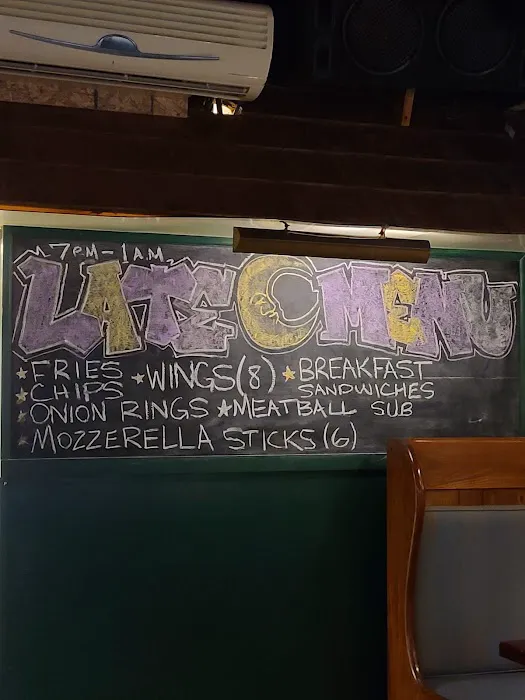 7PM-1AM
LATE MENU
★FRIES ★WINGS(8) ★BREAKFAST
★CHIPS SANDWICHES
★ONION RINGS ★MEATBALL SUB
★MOZZERELLA STICKS(6)